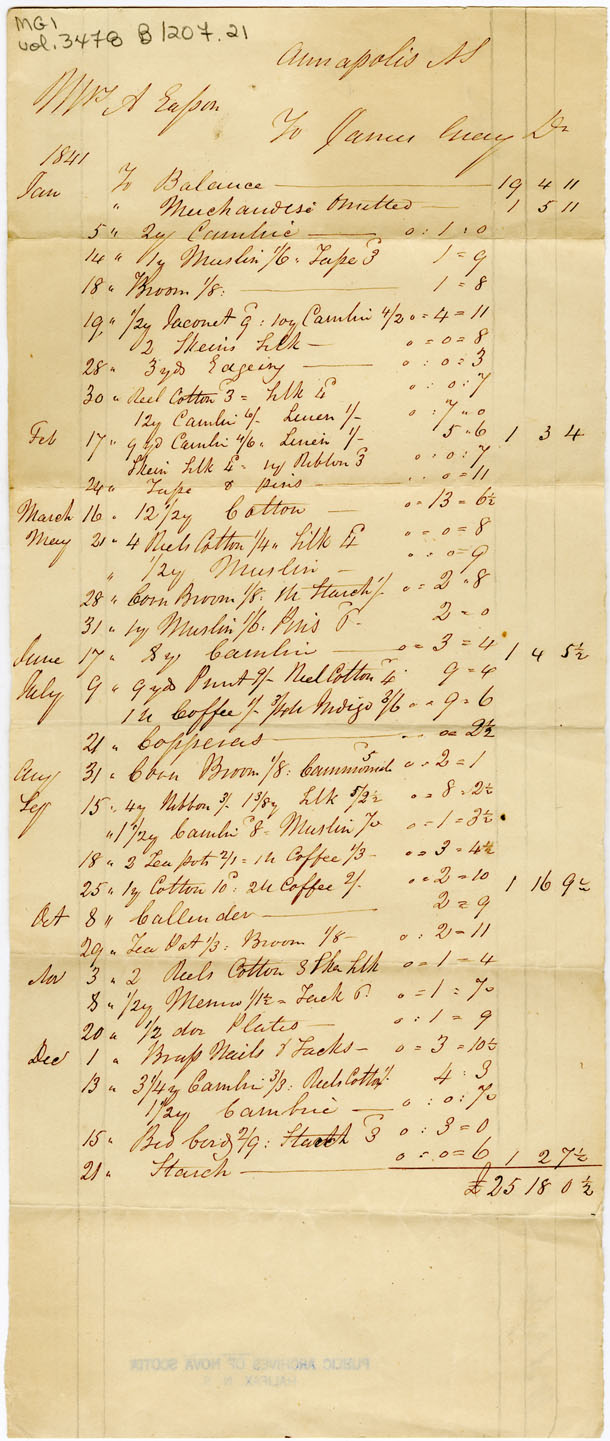 MG1
vol. 3478 B 1207.21
Annapolis NS
Mrs A Eason
To James Gray Dr
1841
Jan To Balance 19 4 11
" Merchandise Omitted 1 5 11
5 " 2y Cambric 0 : 1 : 0
14 " 1y Muslin 1/6 " Tape 3 1 = 9
18 " Broom 1/8 : 1 = 8
19 " 1/2y Jaconet 9 : 10y Cambri 4/2 0 = 4 = 11
2 Skeins Silk 0 = 0 = 8
28 " 3 yds Edgeing 0 : 0 = 3
30 " Reel Cotton 3 = Silk 4 0 : 0 : 7
12y Cambri 6/- Linen 1/- 0 : 7 " 0
Feb 17 " 9 yd Cambri 4/6 " Linen 1/- 5 " 6 1 3 4
Skein Silk 4 = 1y Ribbon 3 0 : 0 : 7
24 " Tape & pins 0 = 11
March 16 " 12 1/2y Cotton 0 = 13 = 6½
May 21 " 4 Reels Cotton 1/4 " Silk 4 0 = 0 = 8
" 1/2y Muslin 0 = 9
28 " Corn Broom 1/8 : 1 lb Starch 1/- 0 = 2 " 8
31 " 1y Muslin 1/6 . Pins 6 2 = 0
June 17 " 8y Cambric 0 = 3 = 4 1 4 5½
July 9 " 9 yds Print 9/- Reel Cotton 4 9 = 4
1 lb Coffee /- 3/4 lb Indigo 3/6 0 = 9 = 6
21 " Copperas 0 = 2½
Aug 31 " Corn Broom 1/8 : Cammomil 5 0 : 2 = 1
Sep 15 " 4y Ribbon 3/- 1 3/8y Silk 5/2½ 0 = 8 = 2½
" 1 1/2y Cambri 8 = Muslin 7½ 0 = 1 = 3½
18 " 2 Tea pots 2/1 = 1 lb Coffee 1/3 0 = 3 = 4½
25 " 1y Cotton 10 : 2 lb Coffee 2/- 0 = 2 = 10 1 16 9½
Oct 8 " Callender 2 = 9
29 " Tea Pot 1/3 : Broom 1/8 0 : 2 = 11
Nov 3 " 2 Reels Cotton 8 Skn Silk 0 = 1 = 4
8 " 1/2y Merino 1/1½ = Tack 6 0 = 1 : 7½
20 " 1/2 doz Plates 0 : 1 = 9
Dec 1 " Brass Nails & Tacks 0 = 3 = 10½
13 " 3 1/4y Cambri 3/3 : Reels Cotton 1/- 4 : 3
1 1/2y Cambric 0 : 0 : 7½
15 " Bed Cord 2/9 : Starch 3 0 : 3 = 0
21 " Starch 0 = 0 = 6 1 2 7½
£25 18 0½
PUBLIC ARCHIVES OF NOVA SCOTIA
HALIFAX N. S.